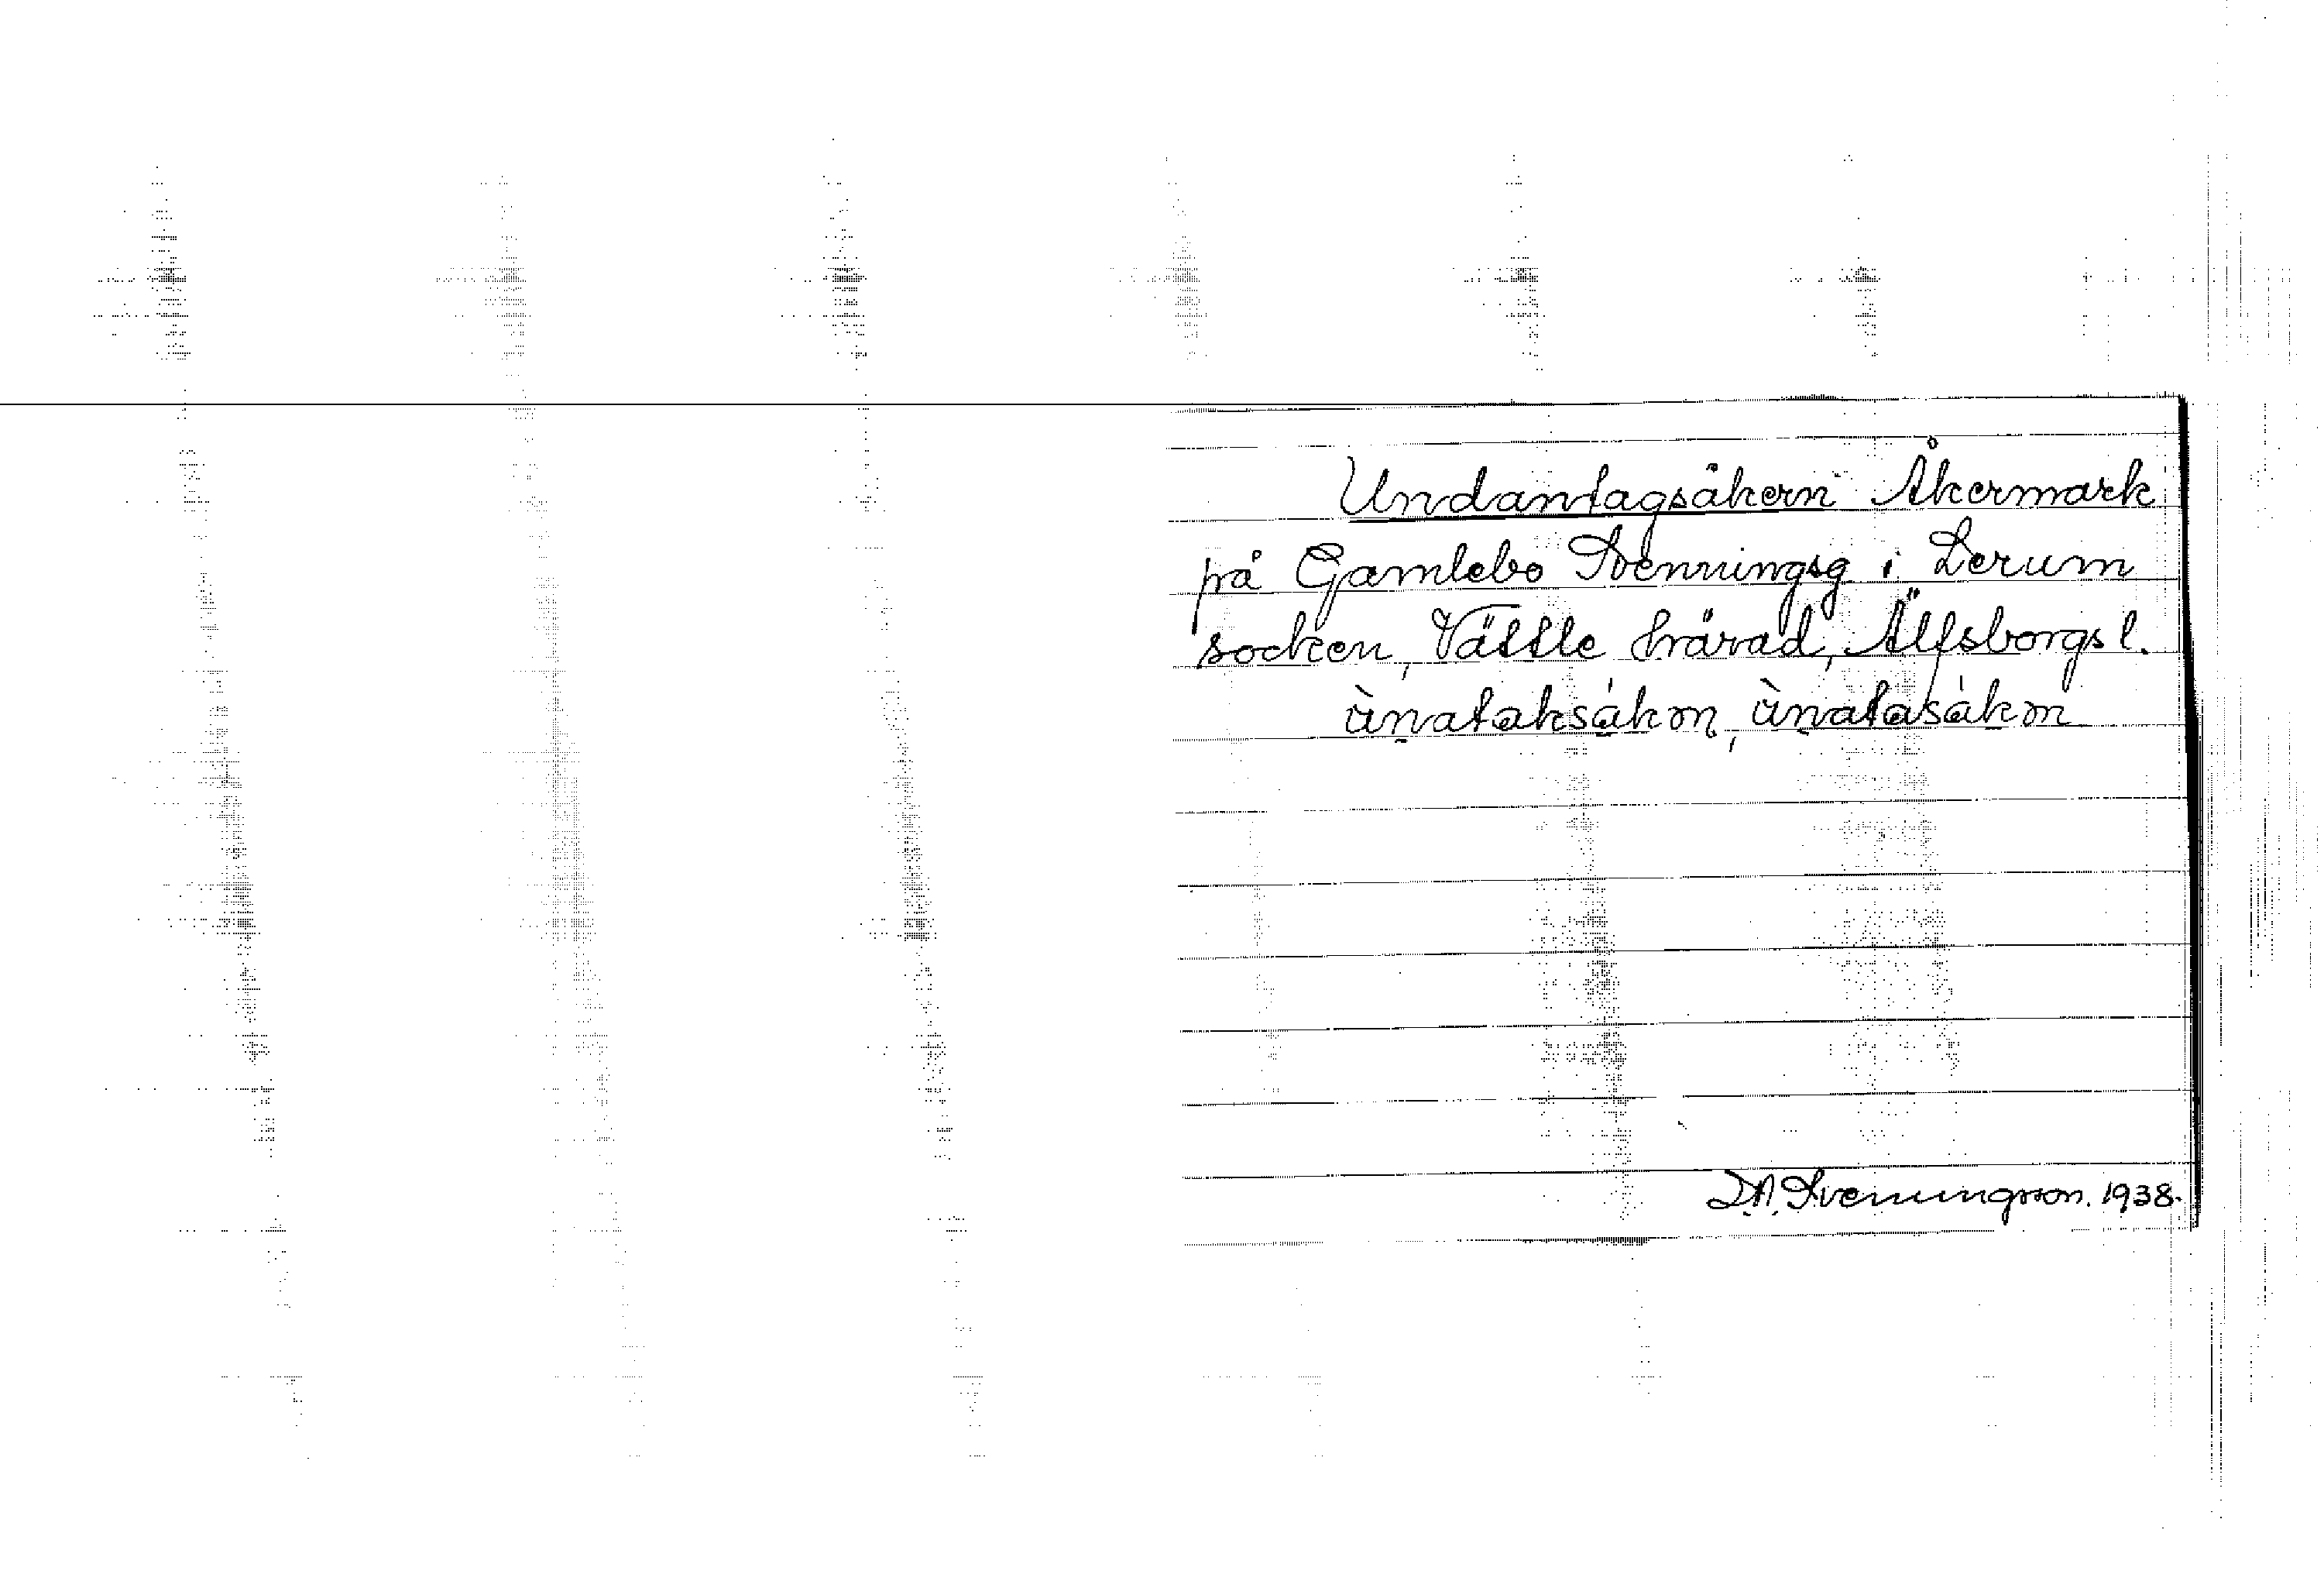 Undantagsåkern Åkermark
på Gamlebo Svenningsg i Lerum
socken, Vättle härad, Älfsborgs l.
ùnataksákɷn, ùnatasákɷn
D.A. Svenningsson. 1938.